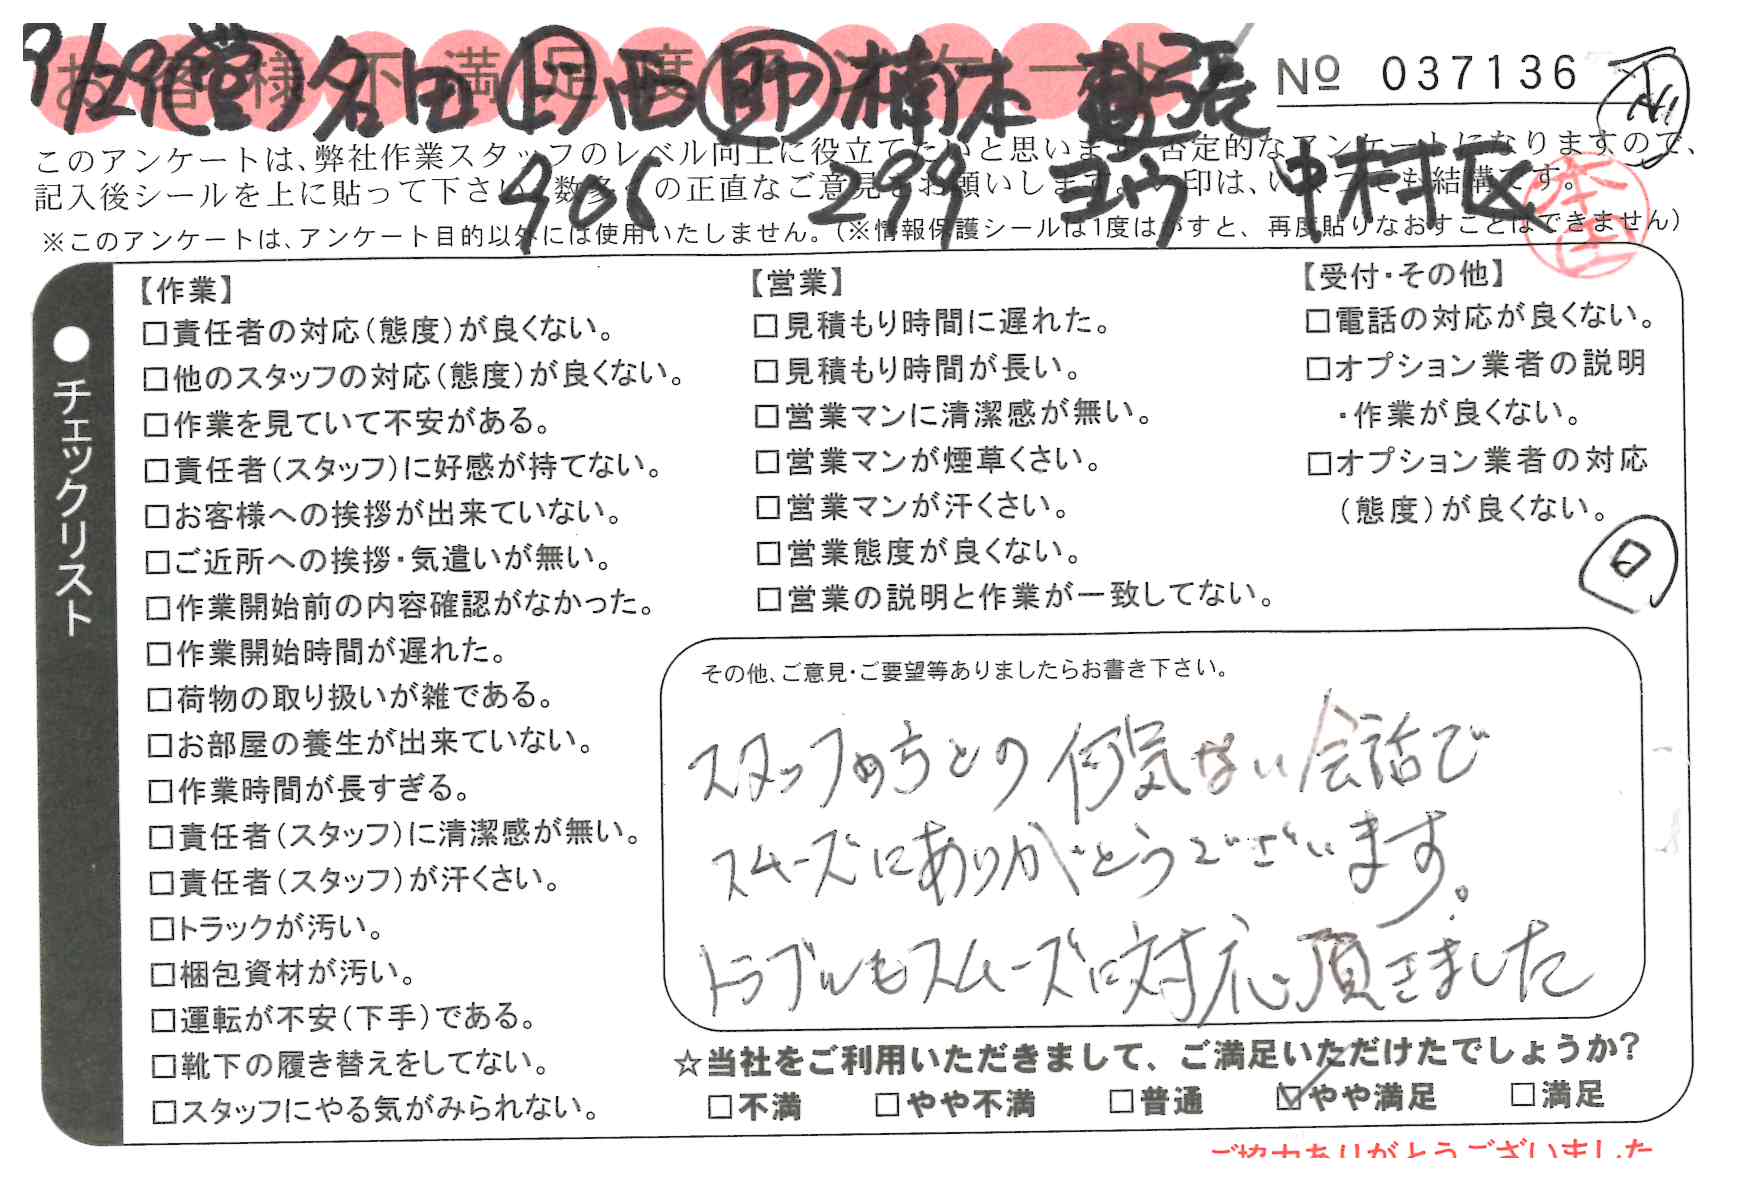 お客様不満足度アンケート
9/29 営 名田 上西 即 楠木
Nº 037136
このアンケートは、弊社作業スタッフのレベル向上に役立てたいと思います。否定的なアンケートになりますので、
記入後シールを上に貼って下さい。数多くの正直なご意見をお願いします。レ印は、いくつでも結構です。
905 299 ヨウ 中村区
※このアンケートは、アンケート目的以外には使用いたしません。(※情報保護シールは1度はがすと、再度貼りなおすことはできません)
本田
●チェックリスト
【作業】
□責任者の対応(態度)が良くない。
□他のスタッフの対応(態度)が良くない。
□作業を見ていて不安がある。
□責任者(スタッフ)に好感が持てない。
□お客様への挨拶が出来ていない。
□ご近所への挨拶・気遣いが無い。
□作業開始前の内容確認がなかった。
□作業開始時間が遅れた。
□荷物の取り扱いが雑である。
□お部屋の養生が出来ていない。
□作業時間が長すぎる。
□責任者(スタッフ)に清潔感が無い。
□責任者(スタッフ)が汗くさい。
□トラックが汚い。
□梱包資材が汚い。
□運転が不安(下手)である。
□靴下の履き替えをしてない。
□スタッフにやる気がみられない。
【営業】
□見積もり時間に遅れた。
□見積もり時間が長い。
□営業マンに清潔感が無い。
□営業マンが煙草くさい。
□営業マンが汗くさい。
□営業態度が良くない。
□営業の説明と作業が一致してない。
【受付・その他】
□電話の対応が良くない。
□オプション業者の説明
・作業が良くない。
□オプション業者の対応
(態度)が良くない。
その他、ご意見・ご要望等ありましたらお書き下さい。
スタッフの方との何気ない会話で
スムーズにありがとうございます。
トラブルもスムーズに対応頂きました
☆当社をご利用いただきまして、ご満足いただけたでしょうか?
□不満 □やや不満 □普通 ☑やや満足 □満足
ご協力ありがとうございました